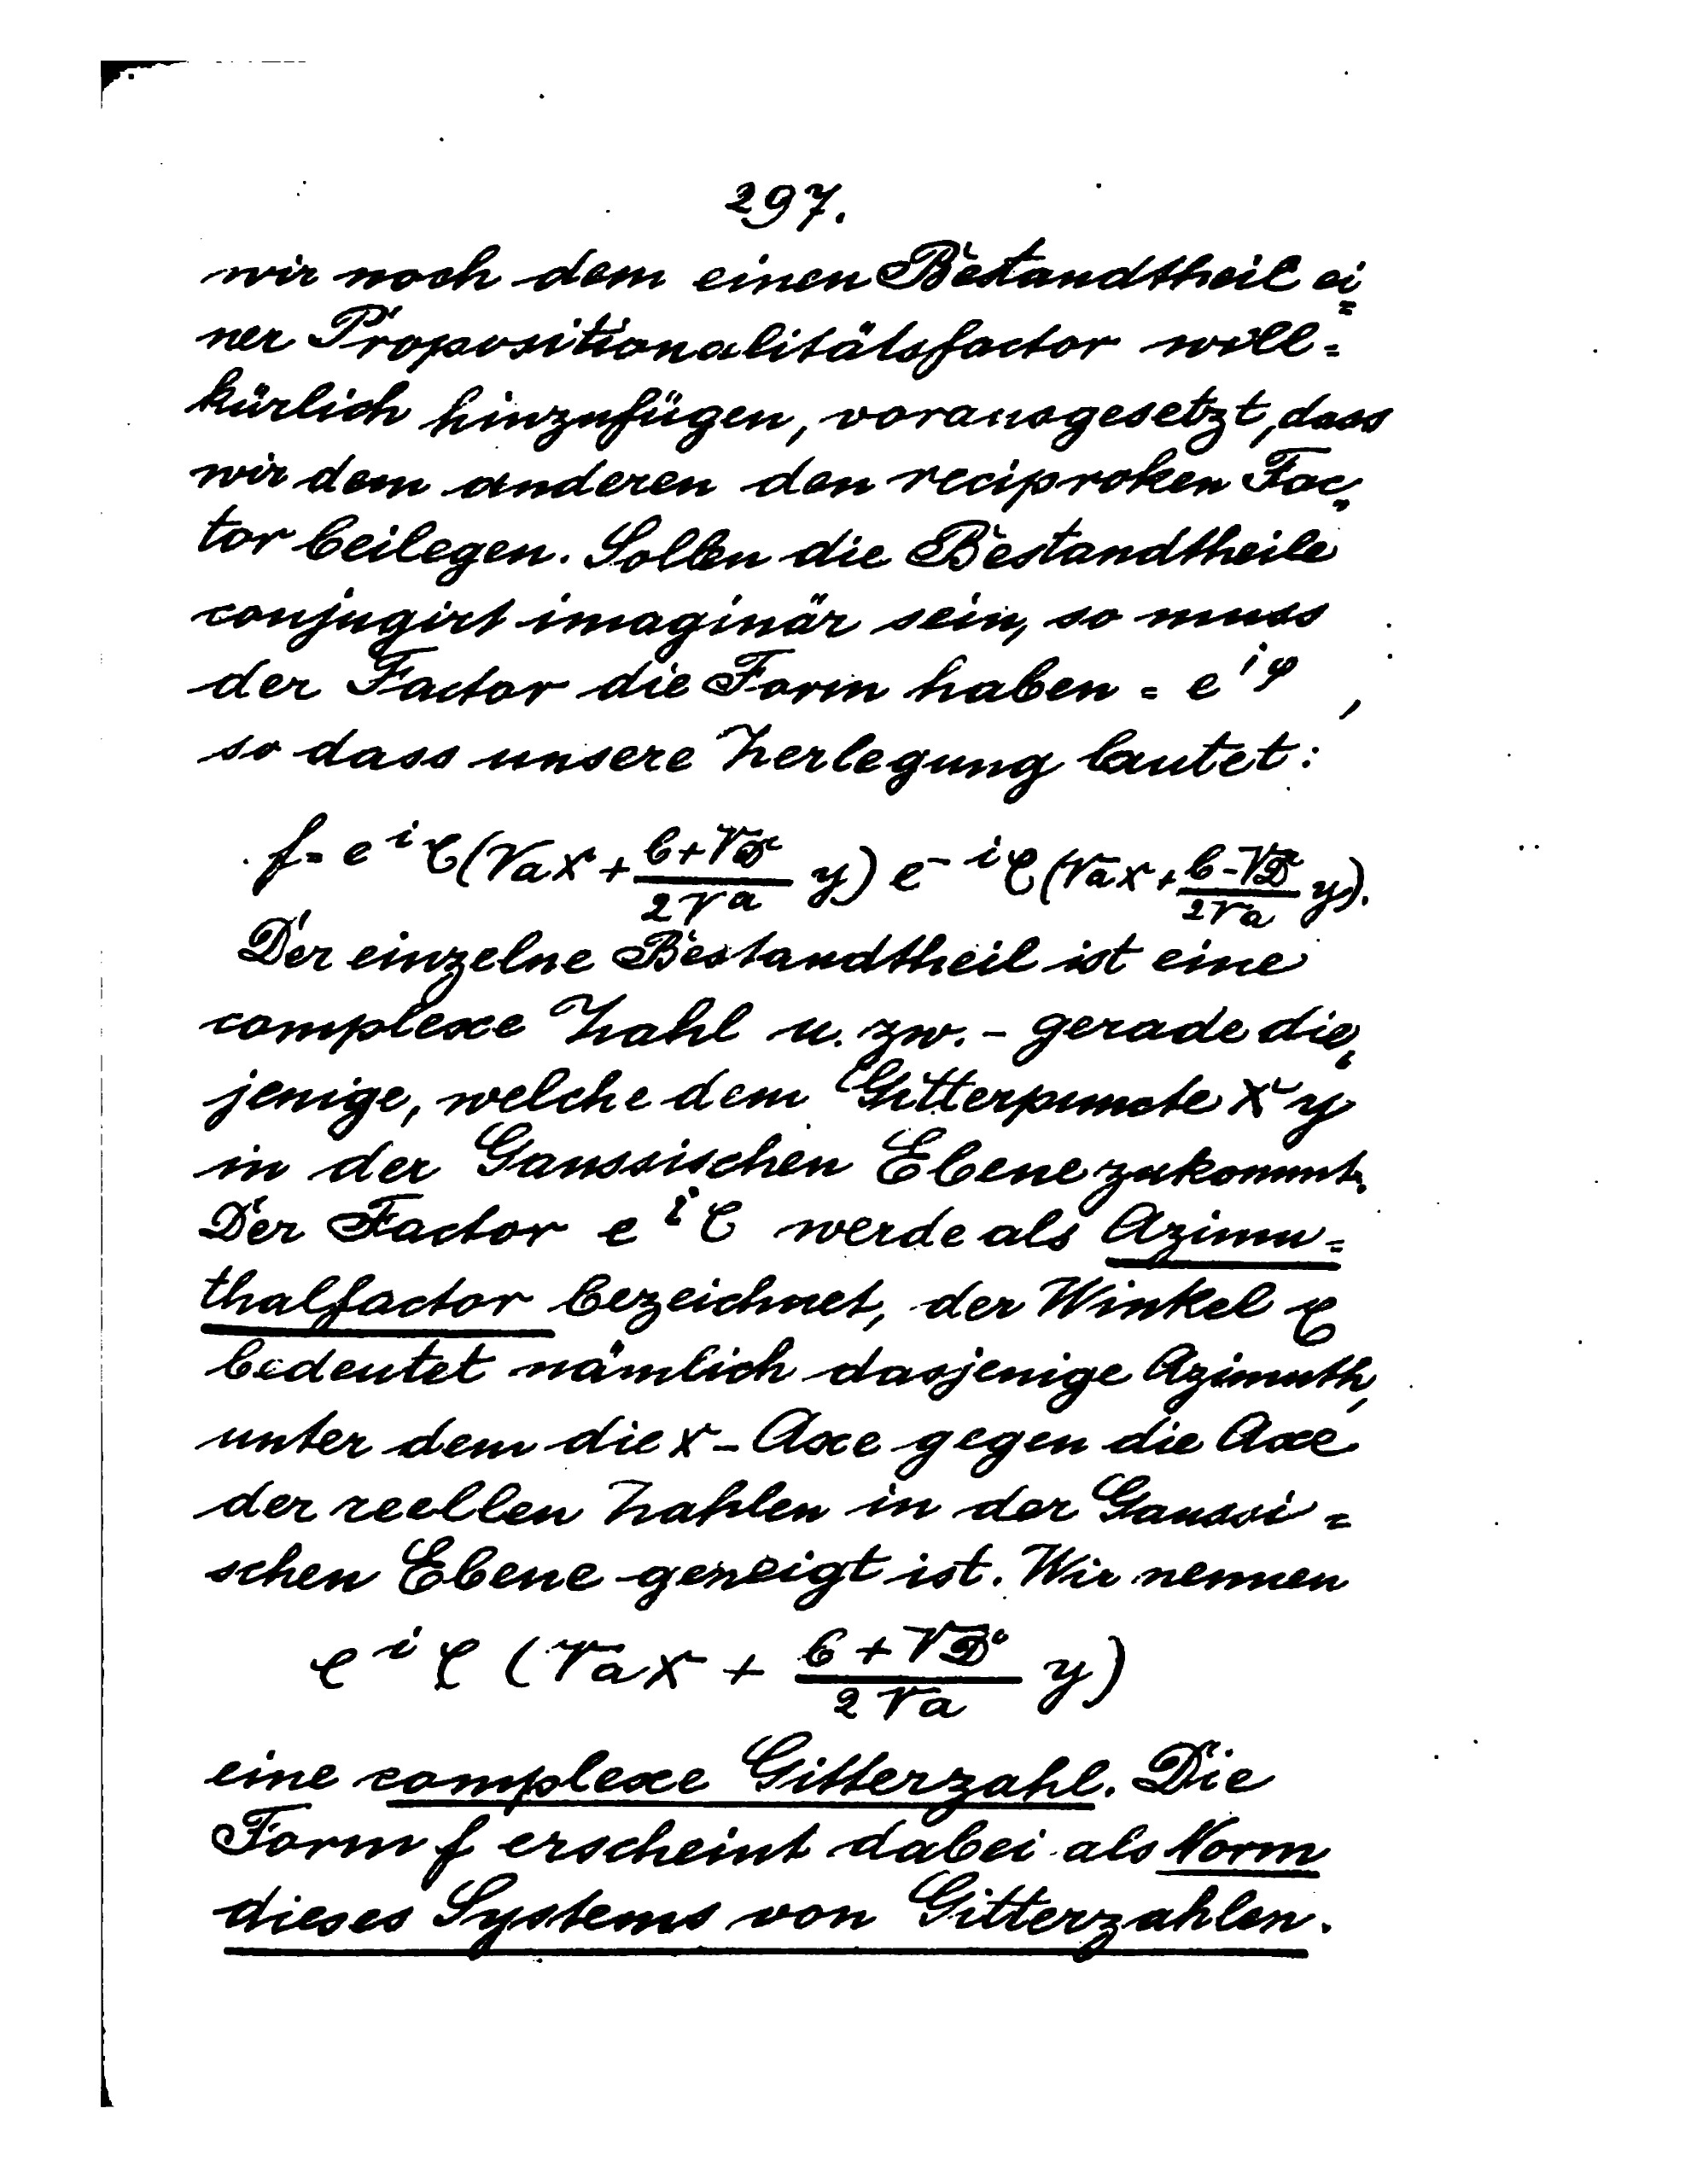 297.
wir noch dem einen Bestandtheil ei=
ner Propositionalitätsfactor will=
kürlich hinzufügen, vorausgesetzt, dass
wir dem anderen den reciproken Fac=
tor beilegen. Sollen die Bestandtheile
conjugirt imaginär sein, so muss
der Factor die Form haben = e^{iφ},
so dass unsere Zerlegung lautet:
f = e^{iτ}(√a x + (b+√D)/(2√a) y) e^{-iτ}(√a x + (b-√D)/(2√a) y).
Der einzelne Bestandtheil ist eine
complexe Zahl u. zw. - gerade die=
jenige, welche dem Gitterpuncte x y
in der Gaussischen Ebene zukommt.
Der Factor e^{iτ} werde als Azimu=
thalfactor bezeichnet, der Winkel τ
bedeutet nämlich dasjenige Azimuth,
unter dem die x-Axe gegen die Axe
der reellen Zahlen in der Gaussi=
schen Ebene geneigt ist. Wir nennen
e^{iτ} (√a x + (b+√D)/(2√a) y)
eine complexe Gitterzahl. Die
Form f erscheint dabei als Norm
dieses Systems von Gitterzahlen.